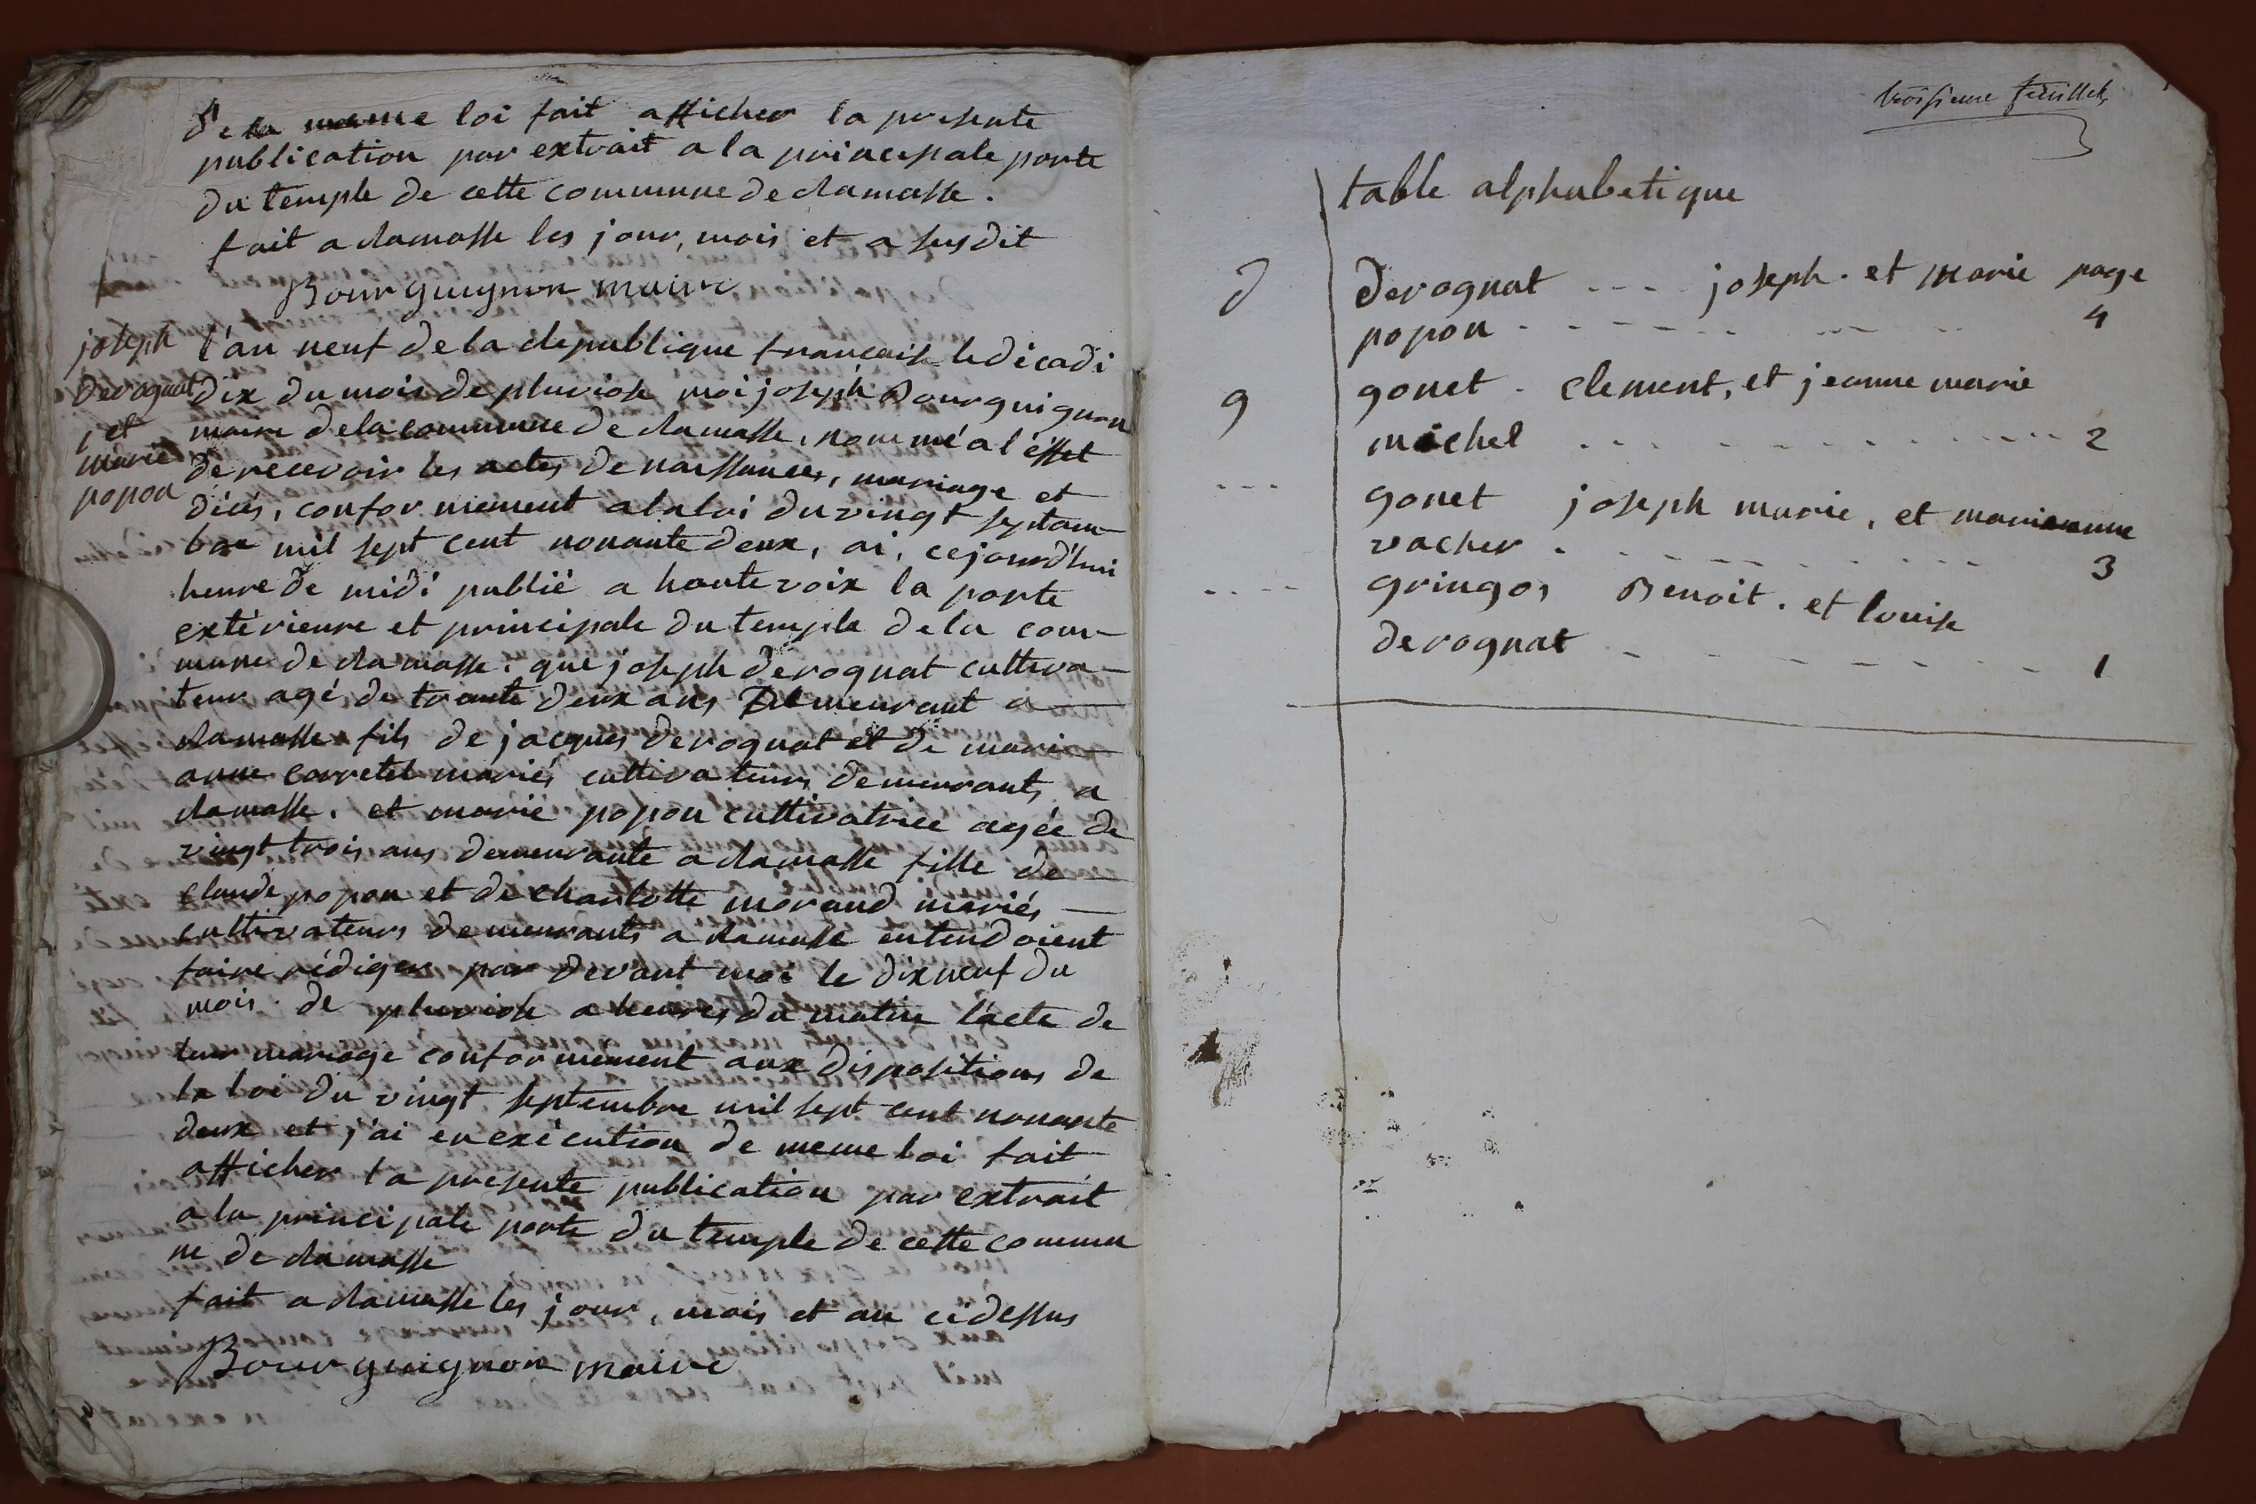 de la meme loi fait afficher la presente
publication par extrait a la principale porte
du temple de cette commune de clamasse.
fait a clamasse les jour, mois et a susdit
Bourguignon maire
joseph
derognat
et
marie
popon
l'an neuf de la republique francaise le dècadi
dix du mois de pluviose moi joseph Bourguignon
maire de la commune de clamasse, nommé a l'éffet
de recevoir les actes de naissances, mariage et
dicès, conformement a la loi du vingt septem
bre mil sept cent nonante deux, ai, cejourd'hui
heure de midi publié a haute voix la porte
extérieure et principale du temple de la com-
mune de clamasse. que joseph derognat cultiva-
teur agé de trante deux ans Demeurant a
clamasse fils de jacques derognat et de mari
anne carretel mariés cultivateurs demeurants a
clamasse. et marie popon cultivatrice agée de
vingt trois ans demeurante a clamasse fille de
claude popon et de charlotte morand mariés
cultivateurs demeurants a clamasse entendoient
faire rédiger par devant moi le dix neuf du
mois de pluviose a heures du matin l'acte de
leur mariage conformement aux dispositions de
la loi du vingt septembre mil sept cent nonante
deux et j'ai en exécution de meme loi fait
afficher la presente publication par extrait
a la principale porte du temple de cette commu
ne de clamasse
fait a clamasse les jour, mois et an cidessus
Bourguignon maire
troisieme feuillet
table alphabetique
d derognat --- joseph. et marie page
popon - - - - - - - 4
g gonet. clement, et jeanne marie
michel - - - - - - - 2
--- gonet joseph marie, et marianne
vacher . - - - - - - 3
---- gringos Benoit. et louise
derognat - - - - - - - 1